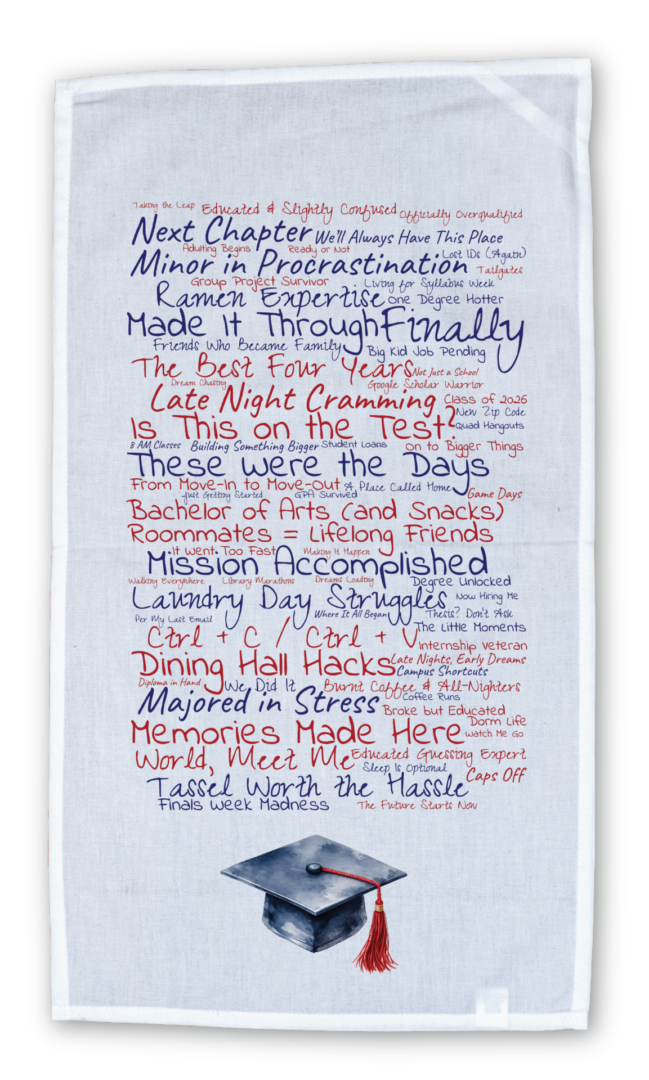 Taking the Leap Educated & Slightly Confused Officially Overqualified
Next Chapter We'll Always Have This Place
Adulting Begins Ready or Not Lost IDs (Again)
Minor in Procrastination Tailgates
Group Project Survivor Living for Syllabus Week
Ramen Expertise One Degree Hotter
Made It Through Finally
Friends Who Became Family Big Kid Job Pending
The Best Four Years Not Just a School
Dream Chasing Google Scholar Warrior
Late Night Cramming Class of 2026
Is This on the Test? New Zip Code
Quad Hangouts
8 AM Classes Building Something Bigger Student Loans on to Bigger Things
These were the Days
From Move-In to Move-Out A Place Called Home
Just Getting Started GPA Survived Game Days
Bachelor of Arts (and Snacks)
Roommates = Lifelong Friends
It Went Too Fast Making It Happen
Mission Accomplished
Walking Everywhere Library Marathons Dreams Loading Degree Unlocked
Laundry Day Struggles Now Hiring Me
Per My Last Email Where It All Began Thesis? Don't Ask
Ctrl + C / Ctrl + V The Little Moments
Internship Veteran
Dining Hall Hacks Late Nights, Early Dreams
Campus Shortcuts
Diploma in Hand We Did It Burnt Coffee & All-Nighters
Majored in Stress Coffee Runs
Broke but Educated
Memories Made Here Dorm Life
Watch Me Go
World, Meet Me Educated Guessing Expert
Sleep Is Optional Caps Off
Tassel Worth the Hassle
Finals Week Madness The Future Starts Now